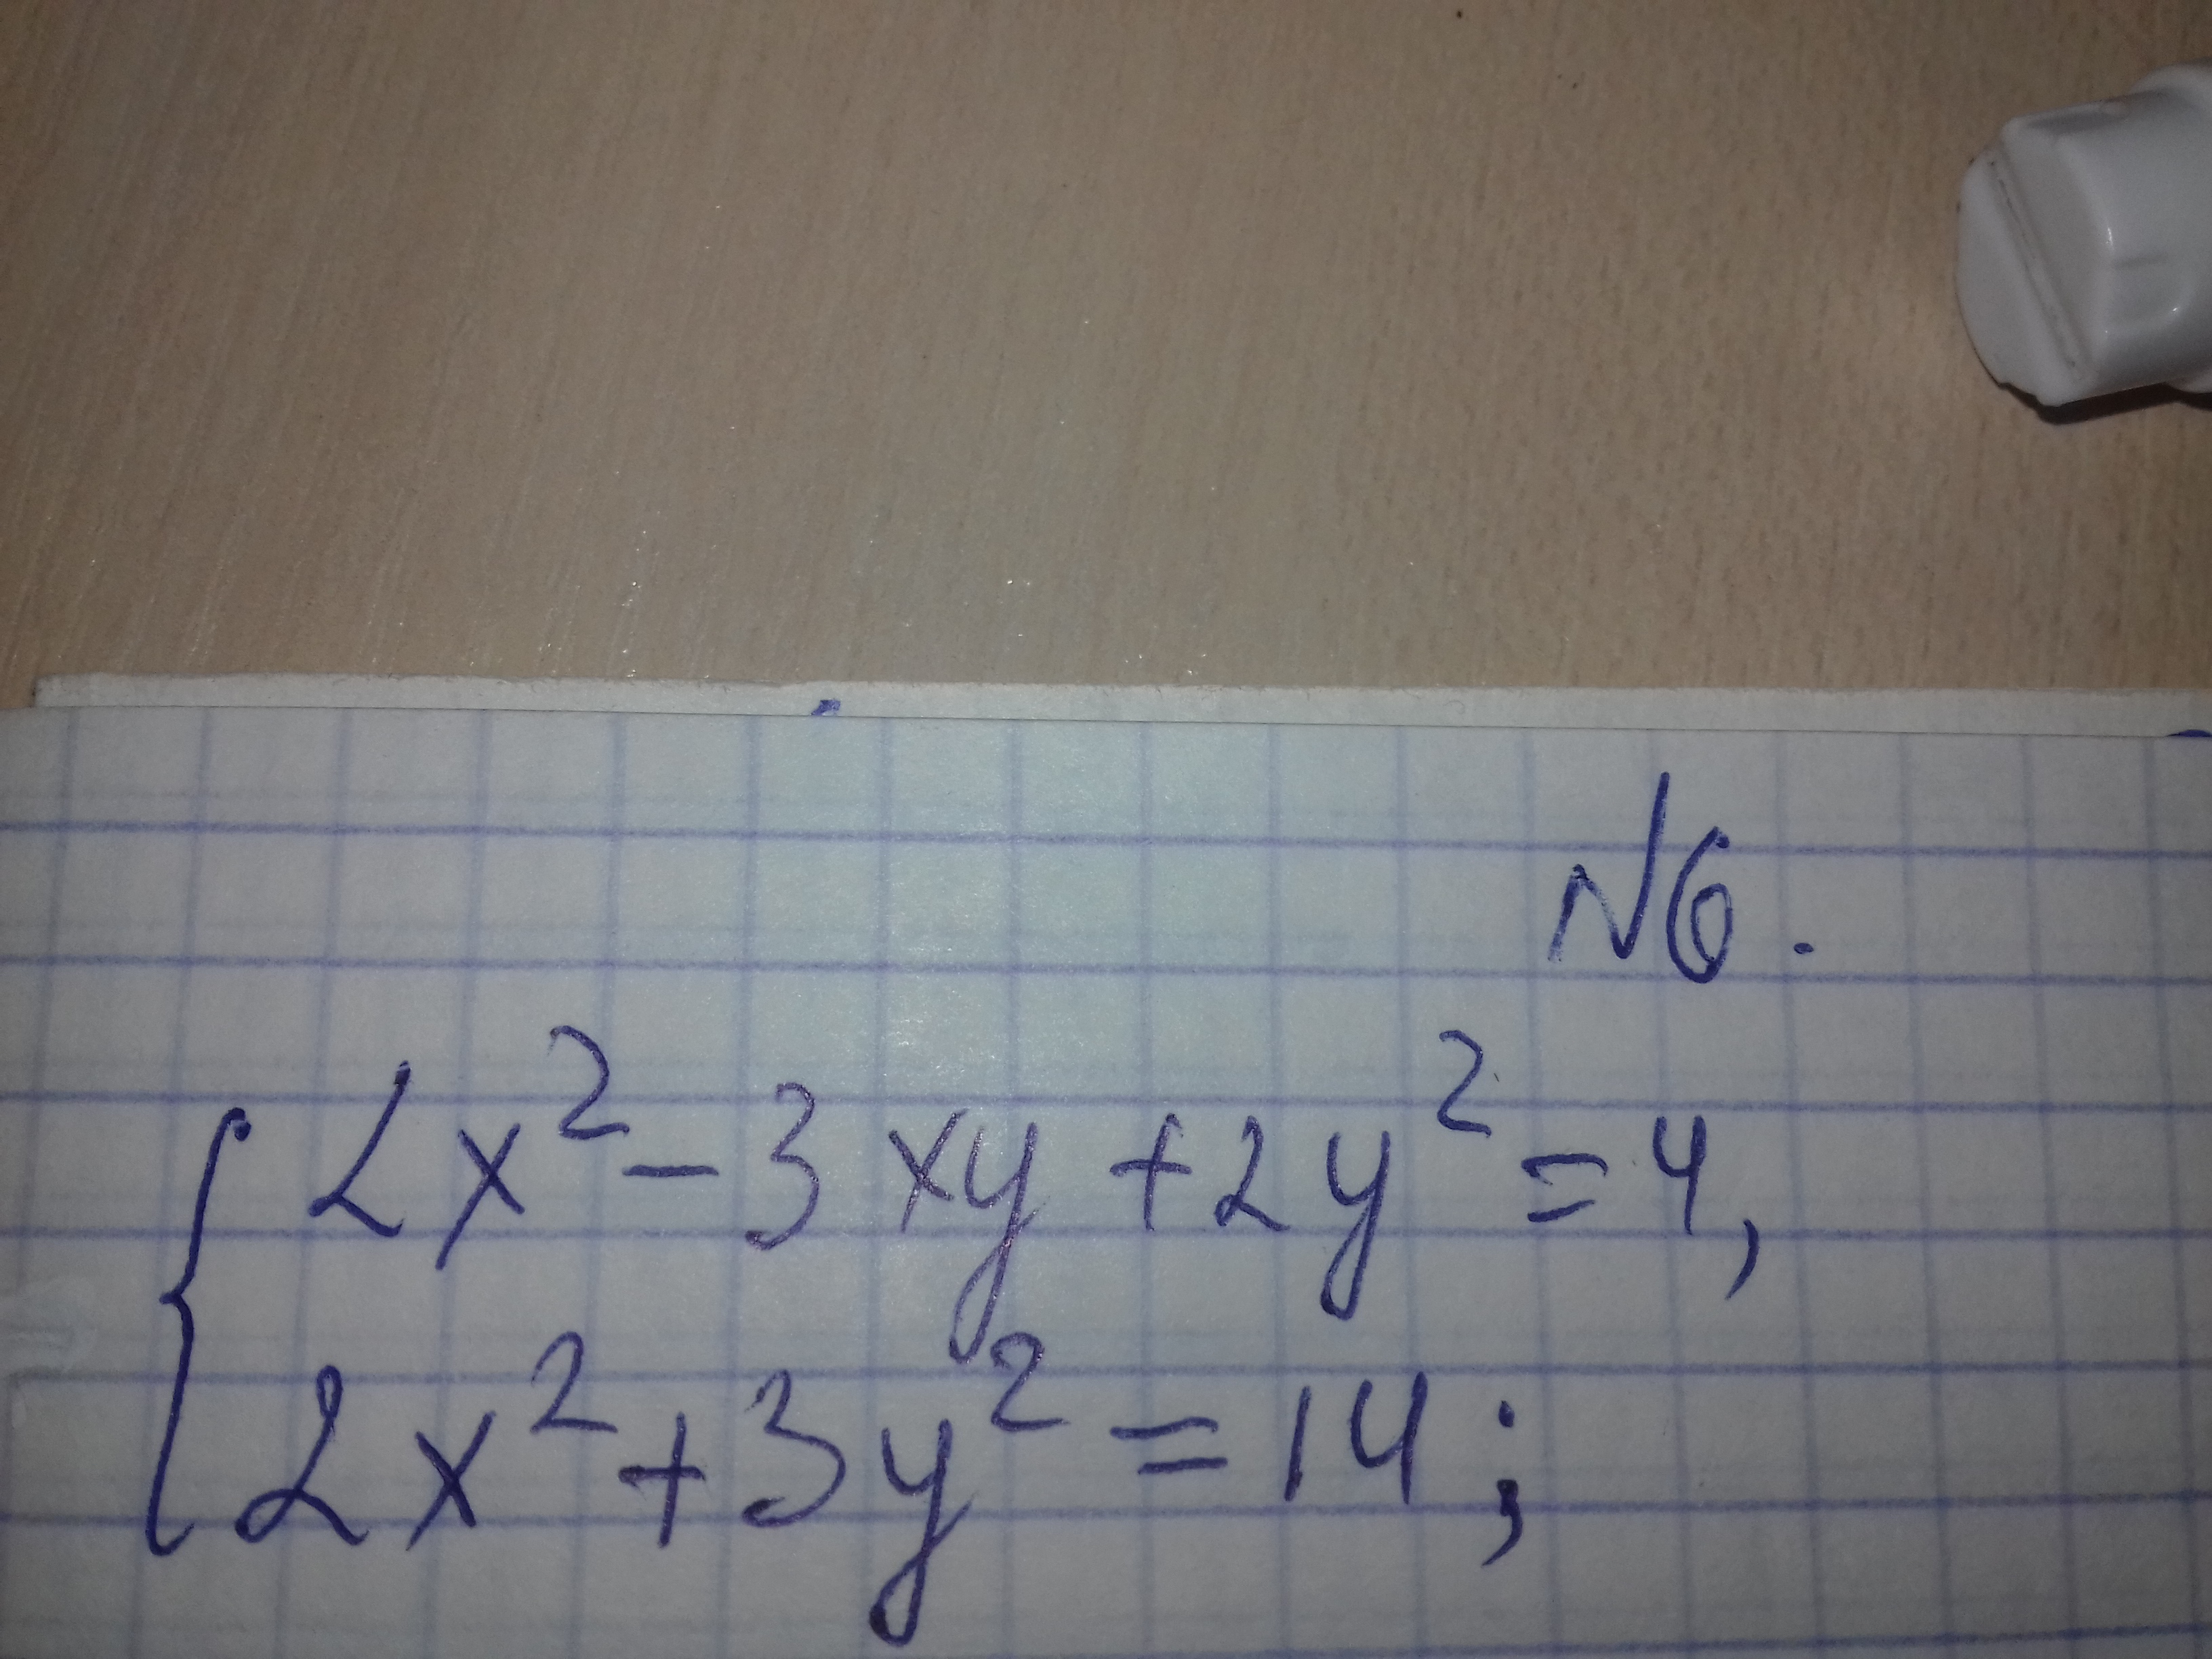 N6.
2x² - 3xy + 2y² = 4,
2x² + 3y² = 14;